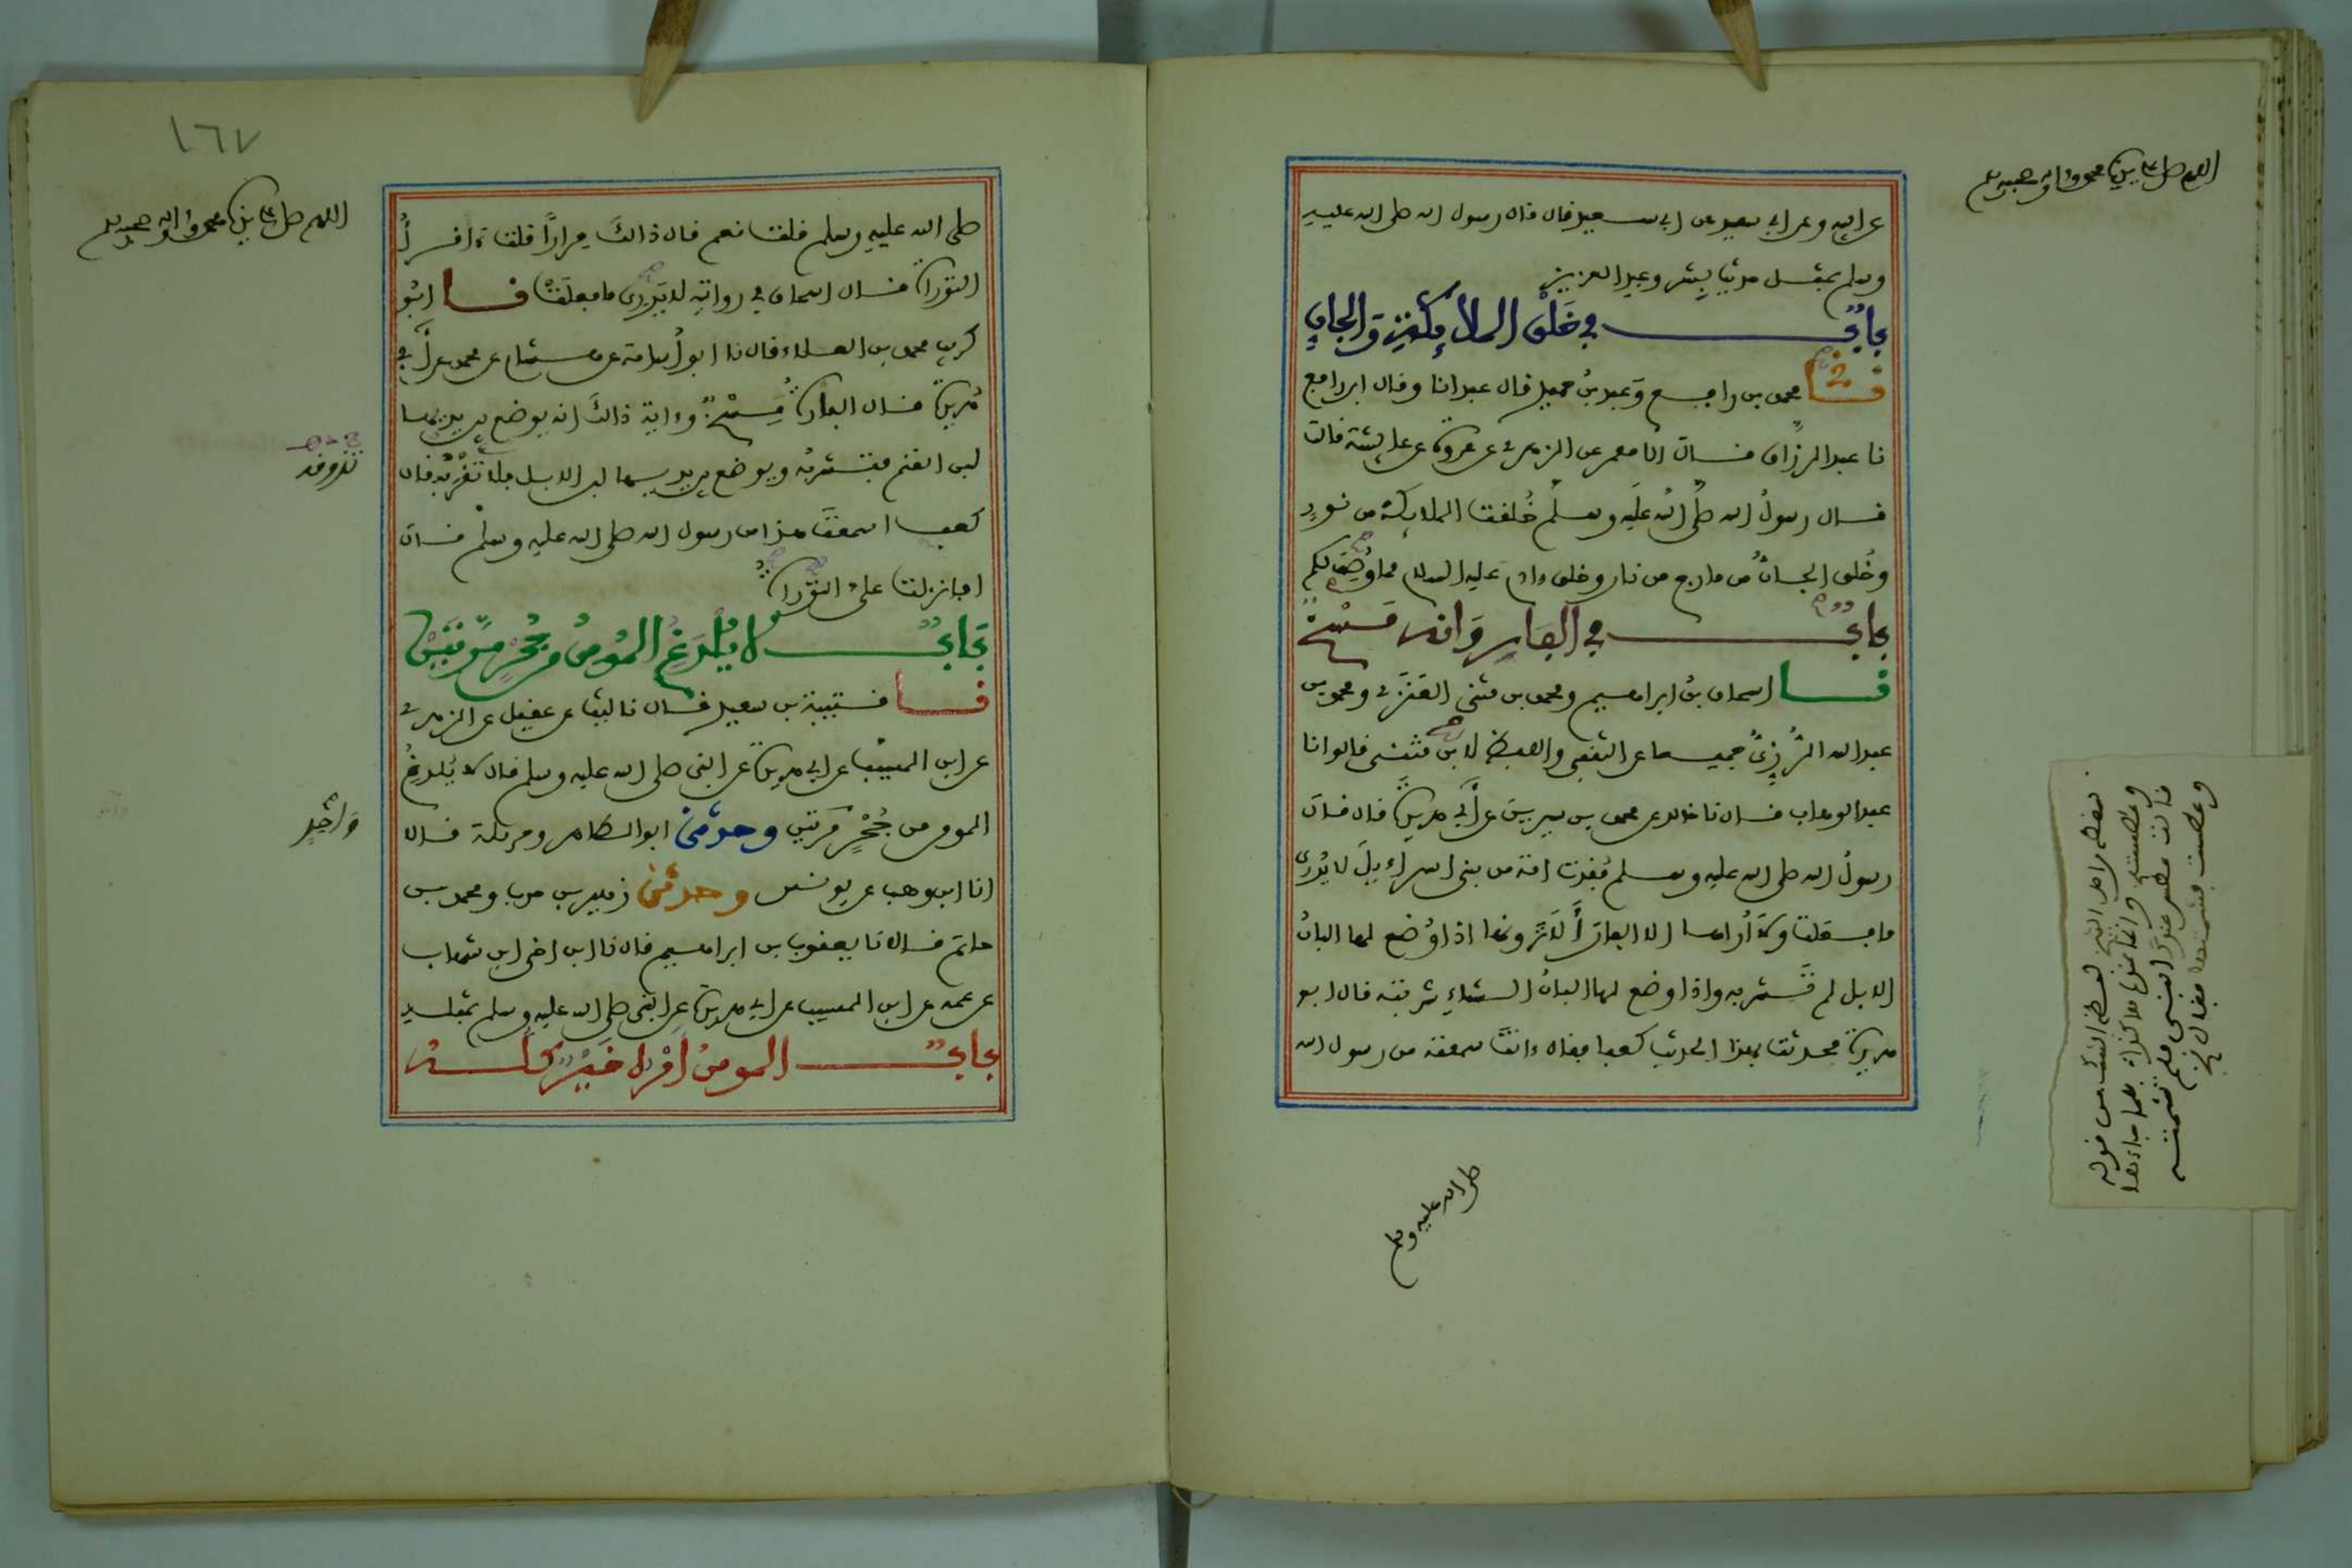 اللهم صل على نبينا محمد واله وصحبه وسلم
عن ابيه وعن ابي سعيد عن ابي سعيد قال قال رسول الله صلى الله عليه
وسلم بمثل حديث بشر وعبد العزيز
باب في خلق الملائكة والجان
نا محمد بن رافع وعبد بن حميد قال عبد انا وقال ابن رافع
نا عبد الرزاق قال انا معمر عن الزهري عن عروة عن عايشة قالت
قال رسول الله صلى الله عليه وسلم خلقت الملايكة من نور
وخلق الجان من مارج من نار وخلق ءادم عليه السلام مما وصف لكم
باب في الفار وانه مسخ
نا اسحاق بن ابراهيم ومحمد بن مثنى العنزي ومحمد بن
عبد الله الرزي جميعا عن الثقفي واللفظ لابن مثنى قالوا نا
عبد الوهاب قال نا خالد عن محمد بن سيرين عن ابي هريرة قال قال
رسول الله صلى الله عليه وسلم فقدت امة من بني اسراءيل لا يدرى
ما فعلت ولا أراها الا الفار ألا ترونها اذا وضع لها البان
الابل لم تشربه واذا وضع لها البان الشاء شربته قال ابو
هريرة فحدثت بهذا الحديث كعبا فقال ءانت سمعته من رسول الله
صلى الله عليه وسلم
١٦٧
اللهم صل على نبينا محمد واله وصحبه وسلم
صلى الله عليه وسلم قلت نعم قال ذالك مرارا قلت ءاقرأ
التوراة قال اسحاق في روايته لا يدرى ما فعلت نا ابو
كريب محمد بن العلاء قال نا ابو اسامة عن هشام عن محمد عن أبي
هريرة قال الفارة مسخ وءاية ذالك انه يوضع بين يديها
لبن الغنم فتشربه ويوضع بين يديها لبن الابل فلا تقربه فقال
كعب اسمعت هذا من رسول الله صلى الله عليه وسلم قال
افانزلت علي التوراة
باب لا يلدغ المومن من جحر مرتين
نا قتيبة بن سعيد قال نا ليث عن عقيل عن الزهري
عن ابن المسيب عن ابي هريرة عن النبي صلى الله عليه وسلم قال لا يلدغ
المومن من جحر مرتين وحدثني ابو الطاهر وحرملة قالا
واحد
انا ابن وهب عن يونس وحدثني زهير بن حرب ومحمد بن
حاتم قالا نا يعقوب بن ابراهيم قال نا ابن اخي ابن شهاب
عن عمه عن ابن المسيب عن ابي هريرة عن النبي صلى الله عليه وسلم بمثله
باب المومن امره خير كله